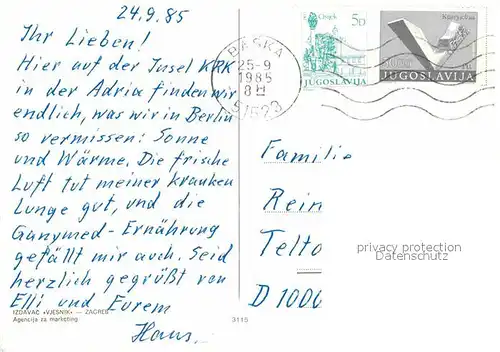 24.9.85
Ihr Lieben!
Hier auf der Insel KRK
in der Adria finden wir
endlich, was wir in Berlin
so vermissen: Sonne
und Wärme. Die frische
Luft tut meiner kranken
Lunge gut, und die
Ganymed-Ernährung
gefällt mir auch. Seid
herzlich gegrüßt von
Elli und Eurem
Hans.
IZDAVAČ »VJESNIK« — ZAGREB
Agencija za marketing
3115
BAŠKA
25-9
1985
8
51523
Osijek
50
JUGOSLAVIJA
JUGOSLAVIJA
Familie
Rein
Telto
D 1000
privacy protection
Datenschutz